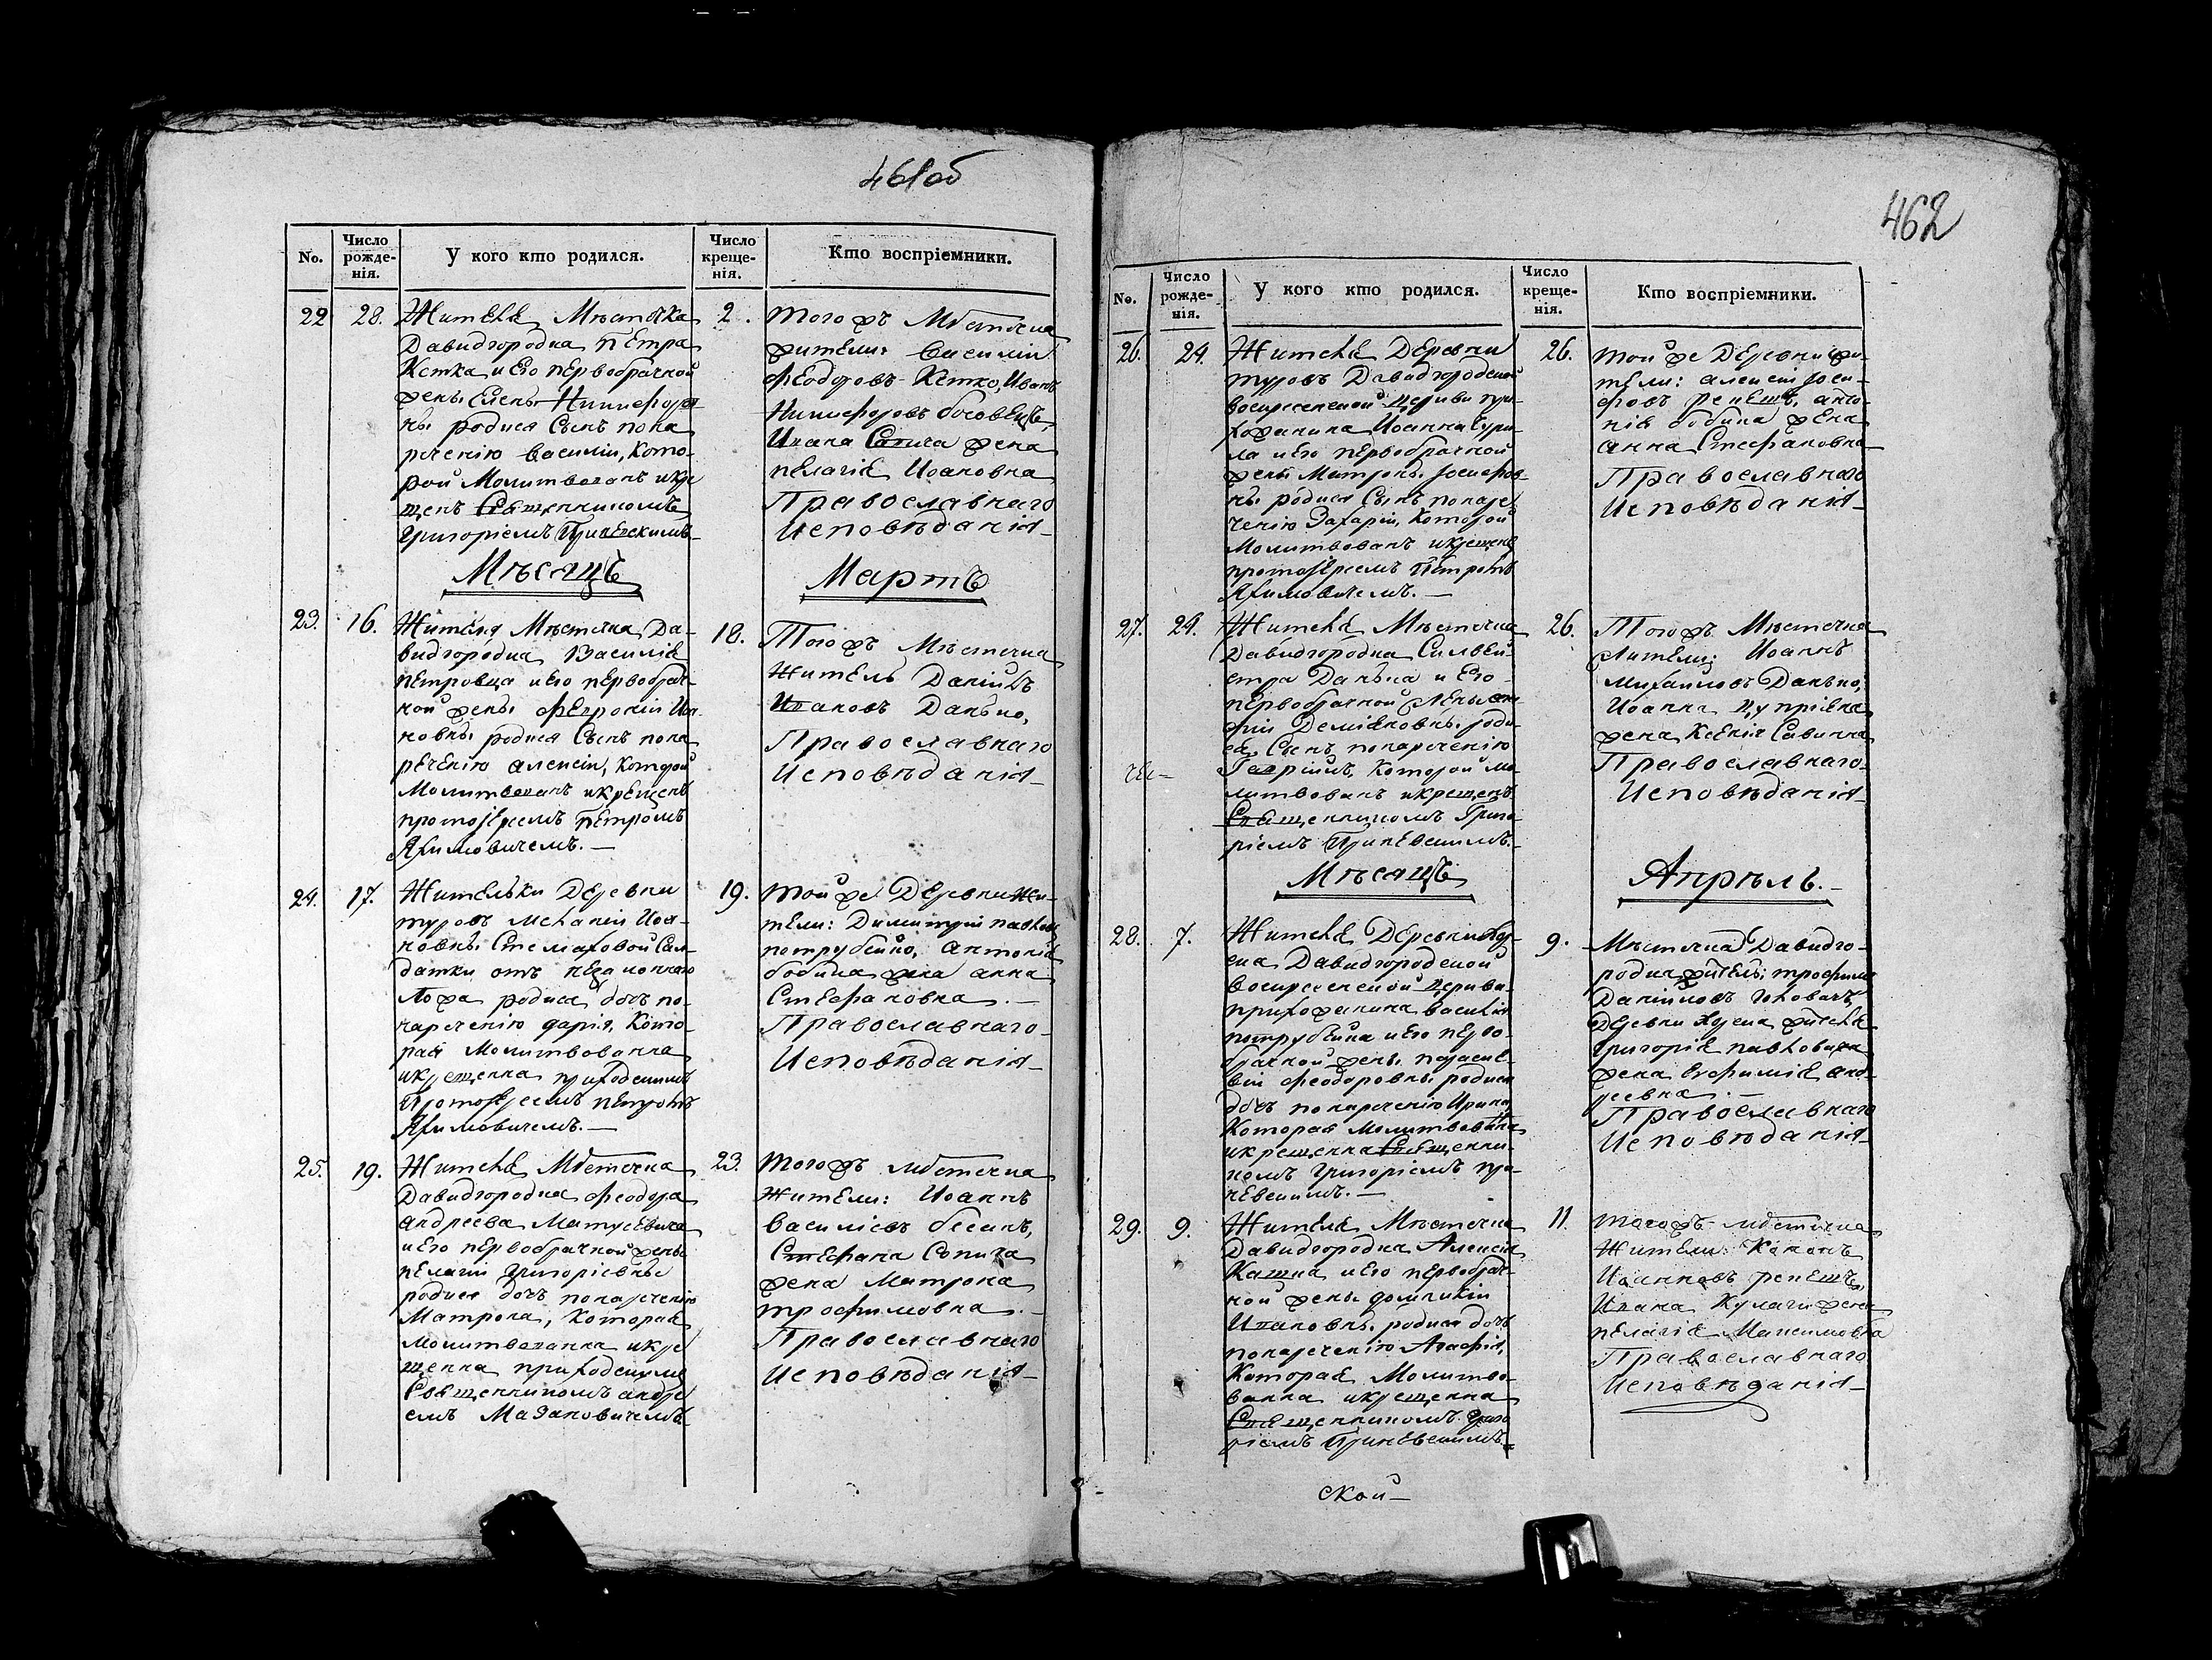 461об
No.
Число рожде-нія.
У кого кто родился.
Число креще-нія.
Кто воспріемники.
22
28.
Жителя Мѣстечка
Давидгородка Петра
Кетка и его первобрачной
жены Елены Никифоров-
ны родися Сынъ пона
реченію Василій, Кото-
рой Молитвованъ икре
щенъ Священникомъ
Григоріемъ
2.
Того жъ Мѣстечка
жители: Василій
Феодоровъ Кетко, Иванъ
Никифоровъ
Ивана Сопича жена
Пелагія Иоановна
Православнаго
Исповѣданія
Мѣсяцъ
Мартъ
23.
16.
Жителя Мѣстечка Да-
видгородка Василія
Петровца и его первобрач-
ной жены Февроніи Иоа-
новны родися Сынъ пона
реченію Алексій, Которой
Молитвованъ икрещенъ
протоіереемъ Петромъ
Яхимовичемъ.
18.
Тогожъ Мѣстечка
Житель Даніилъ
Ивановъ Данько,
Православнаго
Исповѣданія
24.
17.
Жительки Деревни
туровъ Меланіи Иоа-
новны Стемаховой Сол-
датки отъ незаконнаго
Ложа родися дочь по-
нареченію дарія, Кото-
рая Молитвованна
икрещенна приходскимъ
Протоіереемъ Петромъ
Яхимовичемъ.
19.
той же Деревни жи-
тели: Димитрій павловъ
потрубейко, Антонія
бобика жена анна
Стефановна.
Православнаго
Исповѣданія
25.
19.
Жителя Мѣстечка
Давидгородка Феодора
андреева Матусевича
и его первобрачной жены
пелагіи Григоріевны
родися дочь понареченію
Матрона, Которая
Молитвованна икре
щенна приходскимъ
Священникомъ андре
емъ Мазановичемъ
23.
того жъ мѣстечка
жители: Иоаннъ
Василіевъ
Стефана Сопича
жена Матрона
трофимовна.
Православнаго
Исповѣданія
462
No.
Число рожде-нія.
У кого кто родился.
Число креще-нія.
Кто воспріемники.
26.
24.
Жителя Деревни
туровъ Давидгородской
воскресенской церкви при-
хожанина Иоанна
и его первобрачной
жены Матроны Іосифов-
ны родися Сынъ понаре
ченію Захарій, Которой
Молитвованъ икрещенъ
протоіереемъ Петромъ
Яхимовичемъ.
26.
той же Деревни жи-
тели: алексій Іоси-
фовъ репехъ, анто-
нія бобика жена
анна Стефановна
Православнаго
Исповѣданія
27.
24.
Жителя Мѣстечка
Давидгородка Сильвес-
тра Данька и его
первобрачной Жены
Деміановны роди
ся Сынъ понареченію
Гавріилъ, Которой мо-
литвованъ икрещенъ
Священникомъ Григо-
ріемъ
26.
Тогожъ Мѣстечка
Жители: Иоаннъ
Михаиловъ Данько,
Иоанна
жена Ксенія Савична
Православнаго
Исповѣданія
Мѣсяцъ
Апрѣль.
28.
7.
Жителя Деревни
Давидгородской
воскресенской церкви
прихожанина Василія
потрубейка и его перво-
брачной жены параске-
віи Феодоровны родися
дочь понареченію Ирина
Которая Молитвованна
икрещенна Священни-
комъ Григоріемъ
9.
Мѣстечка Давидго-
родка житель: трофимъ
Даніиловъ
Деревни жителя
Григорія павловича
жена Евфимія анд-
реевна.
Православнаго
Исповѣданія
29.
9.
Жителя Мѣстечка
Давидгородка Алексія
Кашка и его первобрач-
ной жены домникіи
Ивановны родися дочь
понареченію Агафія,
Которая Молитво-
ванна икрещенна
Священникомъ Григо
ріемъ
11.
того жъ мѣстечка
Жители: Кононъ
Иоанновъ репехъ,
Ивана Кулаги жена
пелагія Максимовна
Православнаго
Исповѣданія
ской